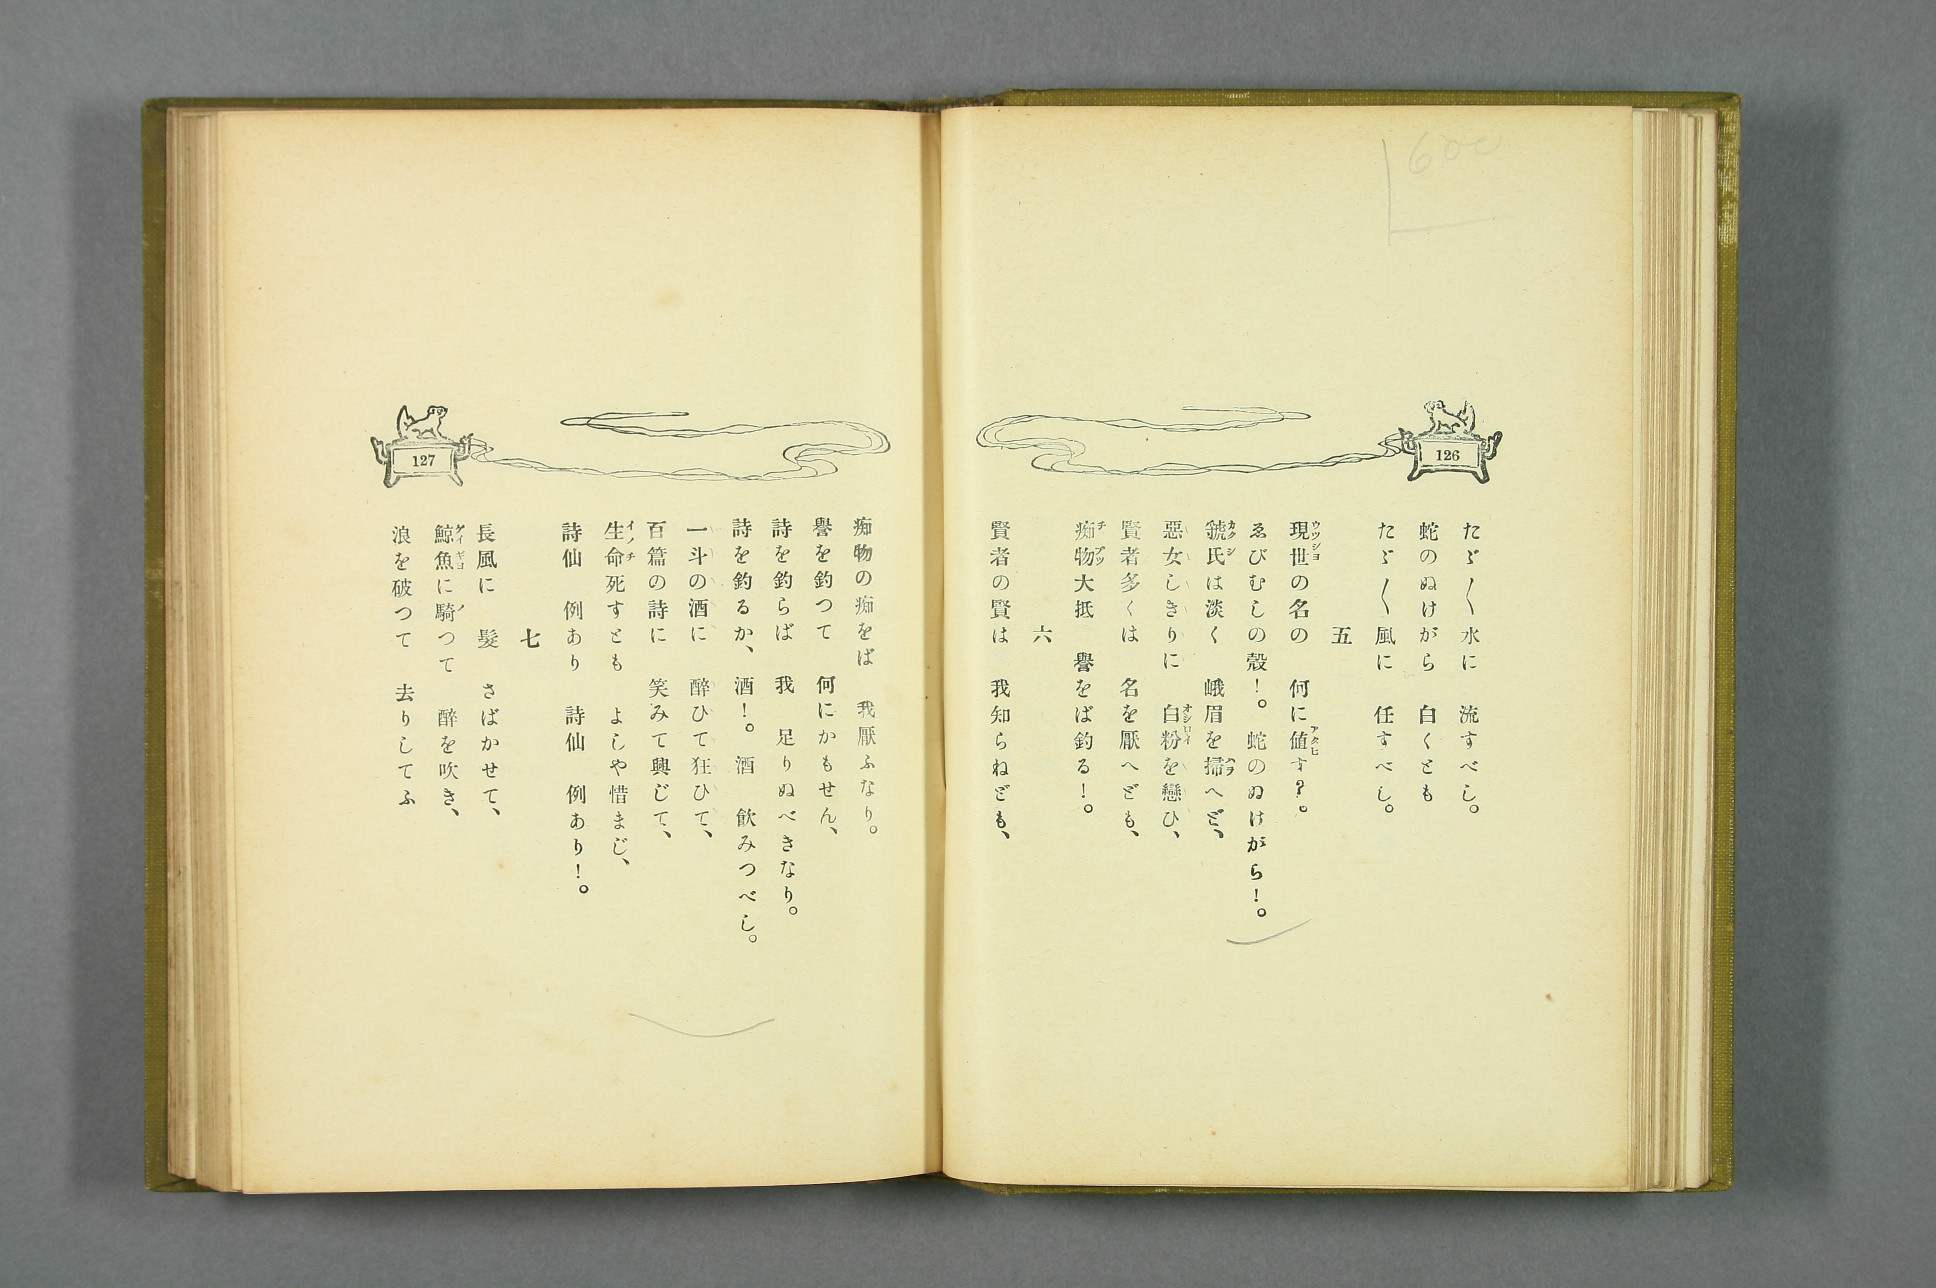 126
たゞ〳〵水に　流すべし。
蛇のぬけがら　白くとも
たゞ〳〵風に　任すべし。
五
現世の名の　何に値す？。
ゑびむしの殻！。蛇のぬけがら！。
虢氏は淡く　峨眉を掃へど、
惡女しきりに　白粉を戀ひ、
賢者多くは　名を厭へども、
痴物大抵　譽をば釣る！。
六
賢者の賢は　我知らねども、
127
痴物の痴をば　我厭ふなり。
譽を釣つて　何にかもせん、
詩を釣らば　我　足りぬべきなり。
詩を釣るか、酒！。酒　飮みつべし。
一斗の酒に　醉ひて狂ひて、
百篇の詩に　笑みて興じて、
生命死すとも　よしや惜まじ、
詩仙　例あり　詩仙　例あり！。
七
長風に　髮　さばかせて、
鯨魚に騎つて　醉を吹き、
浪を破つて　去りしてふ